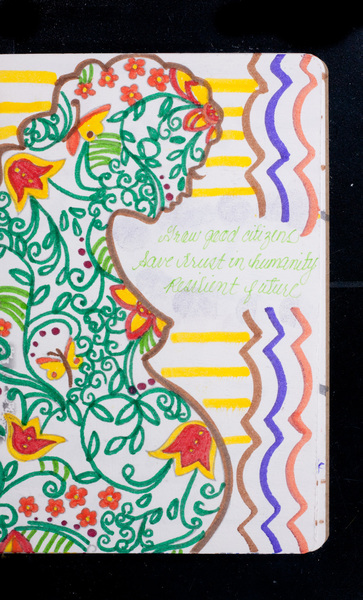 Grow good citizens
Save trust in humanity
Resilient future